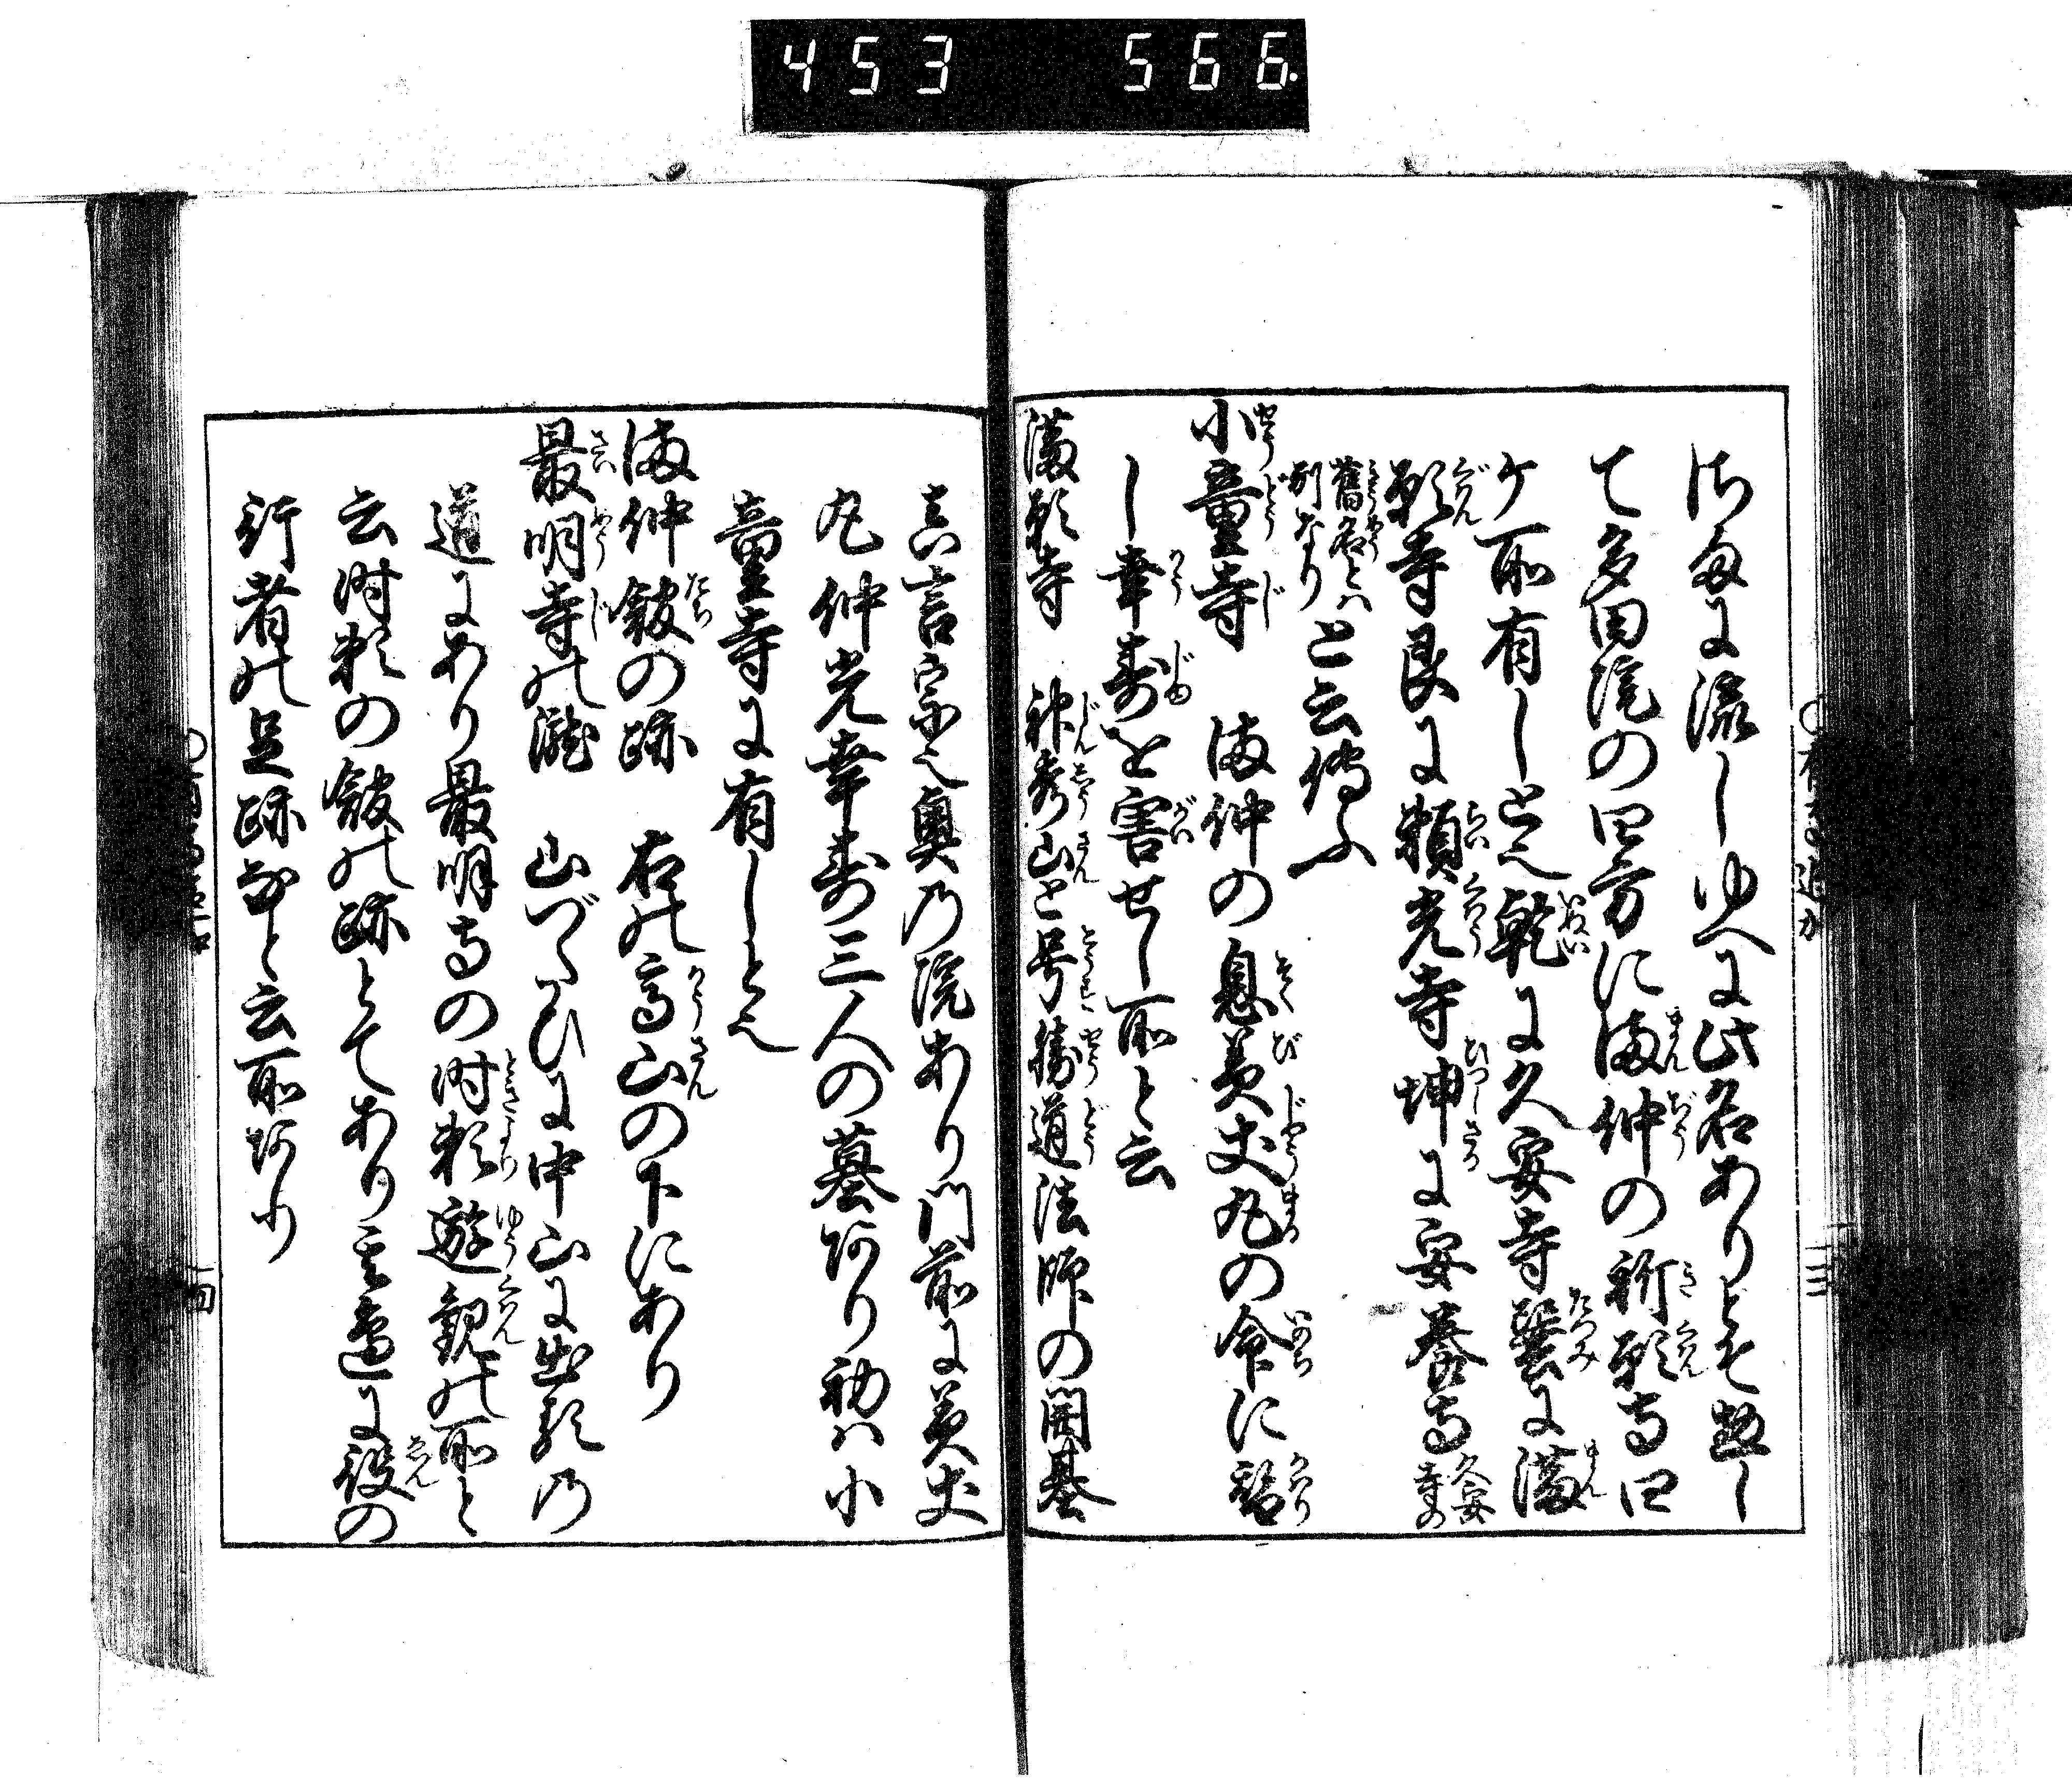 453 566.
流しゆへに此名ありとぞ惣し
て多田院の四方に満仲の祈願寺四
ケ所有しとぞ乾に久安寺巽に満
願寺艮に頼光寺坤に安養寺久安寺の
舊名とハ別なりと云傳ふ
小童寺 満仲の息美丈丸の命に替り
し幸寿を害せし所と云
満願寺 神秀山と号勝道法師の開基
真言宗也奥乃院あり門前に美丈
丸仲光幸寿三人の墓あり初ハ小
童寺に有しとぞ
満仲舘の跡 右の高山の下にあり
最明寺の瀧 山づたひに中山に出る乃
道にあり最明寺の時頼遊観の所と
云時頼の舘の跡とてあり其邊に役の
行者の足跡なと云所あり